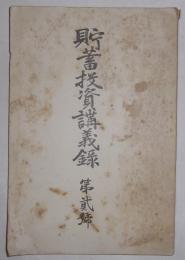 貯蓄投資講義録
第貳號